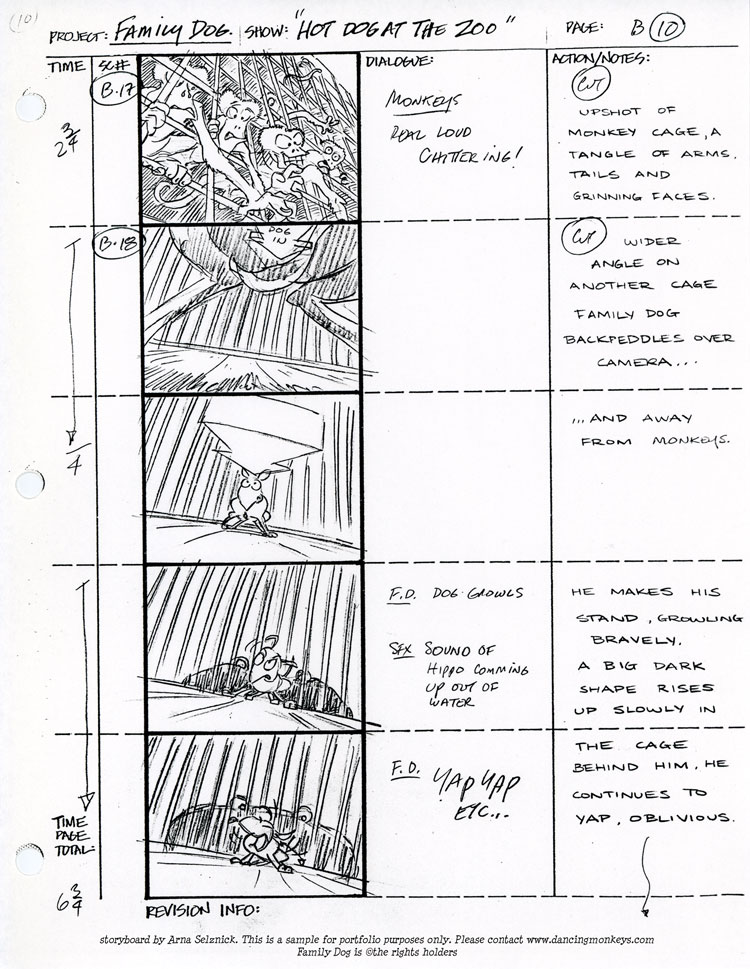 (10)
PROJECT: FAMILY DOG. SHOW: "HOT DOG AT THE ZOO" PAGE: B 10
TIME SC# DIALOGUE: ACTION/NOTES:
B.17
2 3/4
MONKEYS
REAL LOUD
CHITTERING!
CUT
UPSHOT OF
MONKEY CAGE, A
TANGLE OF ARMS,
TAILS AND
GRINNING FACES.
B.18
DOG
IN
CUT WIDER
ANGLE ON
ANOTHER CAGE
FAMILY DOG
BACKPEDDLES OVER
CAMERA...
4
...AND AWAY
FROM MONKEYS.
F.D. DOG GROWLS
SFX SOUND OF
HIPPO COMMING
UP OUT OF
WATER
HE MAKES HIS
STAND, GROWLING
BRAVELY.
A BIG DARK
SHAPE RISES
UP SLOWLY IN
F.D. YAP YAP
ETC...
THE CAGE
BEHIND HIM, HE
CONTINUES TO
YAP, OBLIVIOUS.
TIME
PAGE
TOTAL:
6 3/4
REVISION INFO:
storyboard by Arna Selznick. This is a sample for portfolio purposes only. Please contact www.dancingmonkeys.com
Family Dog is ©the rights holders